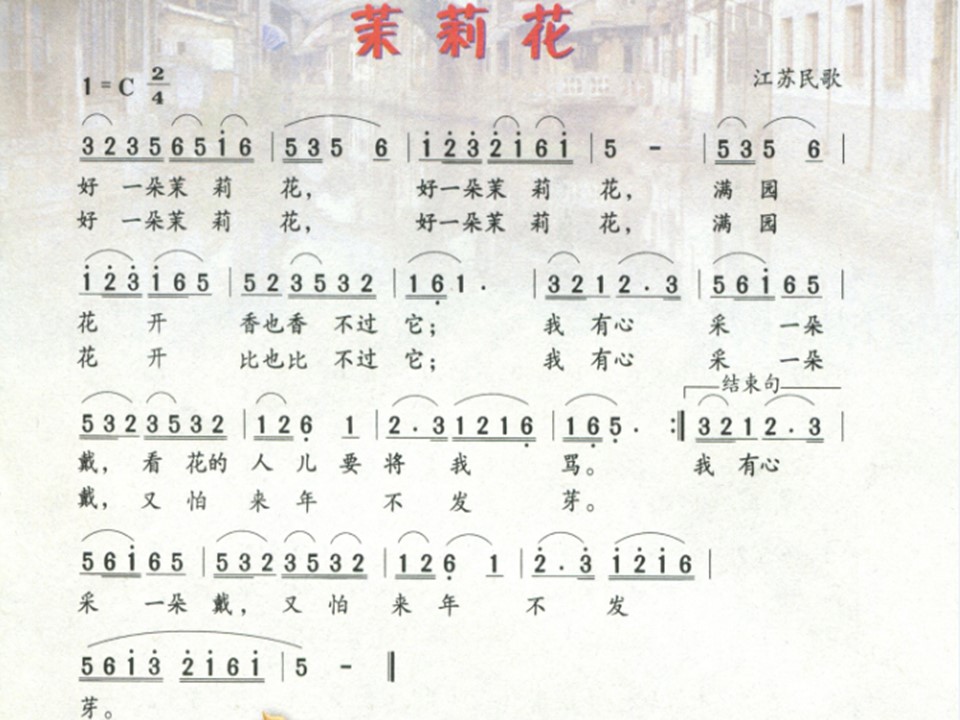 茉莉花
1=C 2/4 江苏民歌
3235 6516 | 535 6 | i̇2̇3̇2̇i̇6i̇ | 5 - | 535 6 |
好 一朵茉 莉 花, 好一朵茉 莉 花, 满 园
好 一朵茉 莉 花, 好一朵茉 莉 花, 满 园
i̇2̇3̇ i̇65 | 523532 | 16̣1· | 3212·3 | 56i̇65 |
花 开 香也香 不过 它; 我 有心 采 一朵
花 开 比也比 不过 它; 我 有心 采 一朵
结束句
5323532 | 126̣ 1 | 2·31216̣ | 16̣5̣· :‖ 3212·3 |
戴, 看 花的 人 儿 要 将 我 骂。 我 有心
戴, 又 怕 来 年 不 发 芽。
56i̇65 | 5323532 | 126̣ 1 | 2̇·3̇ i̇2̇i̇6 |
采 一朵 戴, 又 怕 来 年 不 发
56i̇3̇ 2̇i̇6i̇ | 5 - ‖
芽。